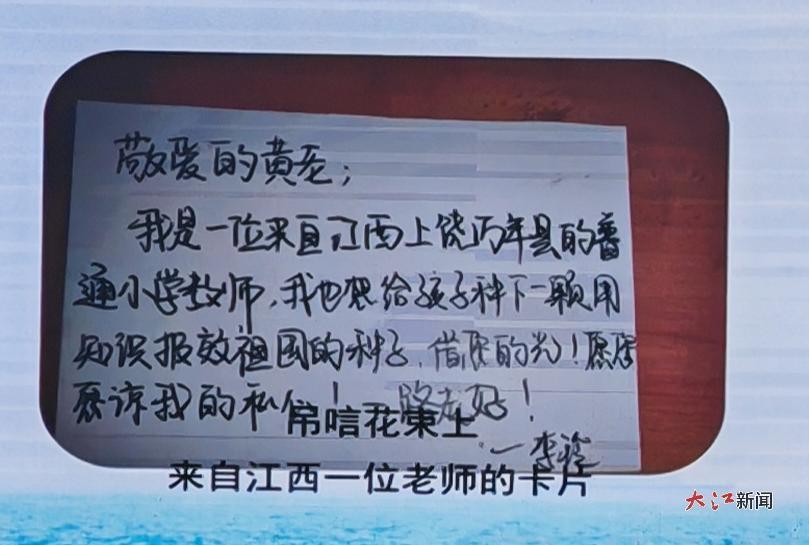 敬爱的黄老:
我是一位来自江西上饶万年县的普
通小学教师,我也想给孩子种下一颗用
知识报效祖国的种子,借您的光!愿您
原谅我的私心!一路走好!
吊唁花束上
来自江西一位老师的卡片
大江新闻